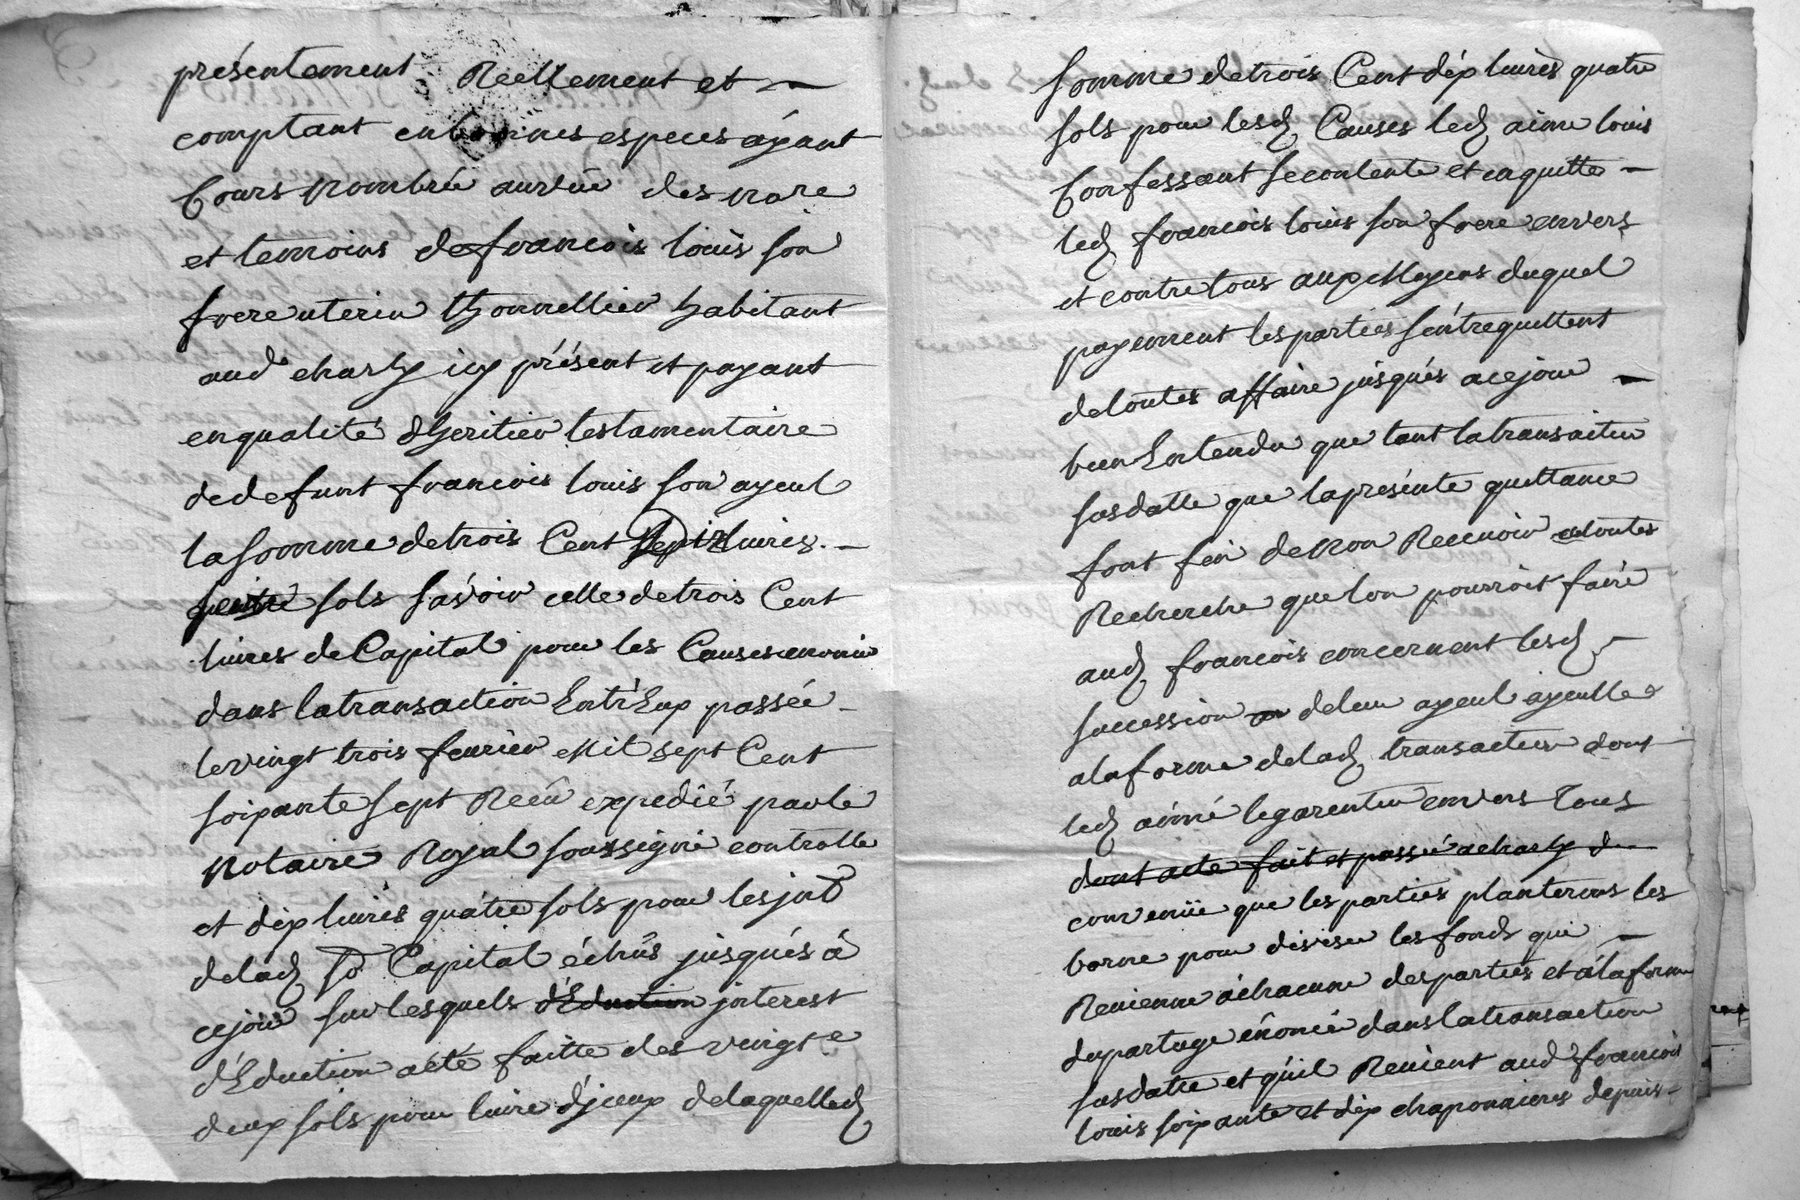 présentement Reellement et
comptant en bonnes especes ayant
Cours Nombrée aurêüe des nore
et temoins de francois louis son
frere uterin thonnellier habitant
aud charly icy présent et payant
en qualité dheritier testamentaire
de defunt francois louis son ayeul
la somme de trois Cent dix livres
quatre sols sávoir celle de trois Cent
livres de Capital pour les Causes
dans la transaction Entr'Eux passée
le vingt trois fevrier Mil sept Cent
soixante sept Reçû expedié par le
Notaire Royal soussigné controlle
et dix livres quatre sols pour les jnt
de lad so Capital échus jusqués à
ce jour sur lesquels d'Eduction jnterest
d'Eduction a eté faitte des vingt
deux sols pour livre d'jceux de laquelled
somme de trois Cent dix livres quatre
sols pour lesd Causes led aimé louis
Confessant se contente et en quitte
led francois louis son frere envers
et contre tous aux Moyens duquel
payement les parties s'entrequittent
de toutes affaire jusqués a ce jour
bien Entendu que tant la transaction
susdatte que la présente quittance
font fin de Non Recevoir a toutes
Recherche que lon pourroit faire
aud francois concernent lesd
succession de leur ayeul ayeulle
a la forme de lad transaction dont
led aimé le garentir envers tous
dont acte fait et passé a charly
convenüe que les parties planterons les
borne pour diviser les fonds qui
Revienne à chacune des parties et à la forme
du partage énoncé dans la transaction
susdatte et qu'il Revient aud francois
louis soixante et dix chaponnieres depuis